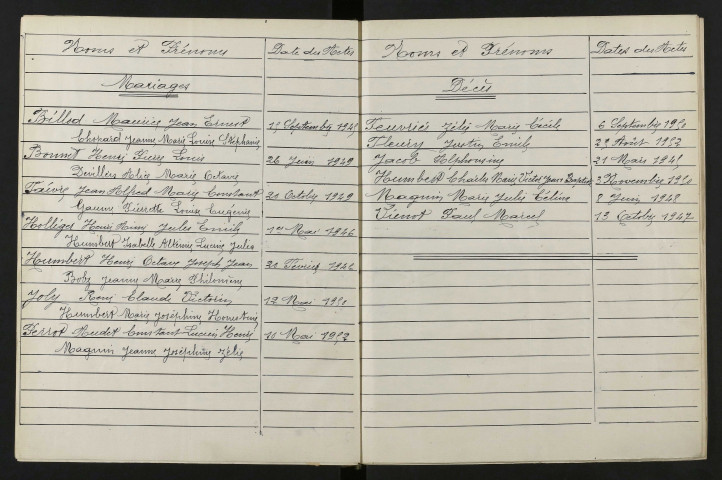 Noms et Prénoms Date des Actes
Mariages
Billod Maurice Jean Ernest Septembre
Chopard Jeanne Marie Louise Stéphanie
Bonnet Henri Louis 26 Juin 1949
Marie Octavie
Faivre Jean Alfred Marie Constant 20 Octobre 1949
Pierrette Louise Eugénie
Henri Jules Emile Mai 1946
Humbert Isabelle Lucie Julia
Humbert Henri Octave Joseph Jean 21 Février 1946
Jeanne Marie Philomène
Joly Rémy Claude Victorin 12 Mai 1950
Humbert Marie Joséphine
Perrot Constant Lucien Henri 10 Mai 1952
Magnin Jeanne Joséphine Zélie
Noms et Prénoms Dates des Actes
Décès
Zélie Marie Cécile 6 Septembre 1950
Fleury Justin Emile 29 Août 1952
Jacob Alphonsine 21 Mars
Humbert Charles Marie Victor Jean Baptiste 3 Novembre 1950
Magnin Marie Julie Céline 8 Juin 1948
Vienot Paul Marcel 13 Octobre 1947